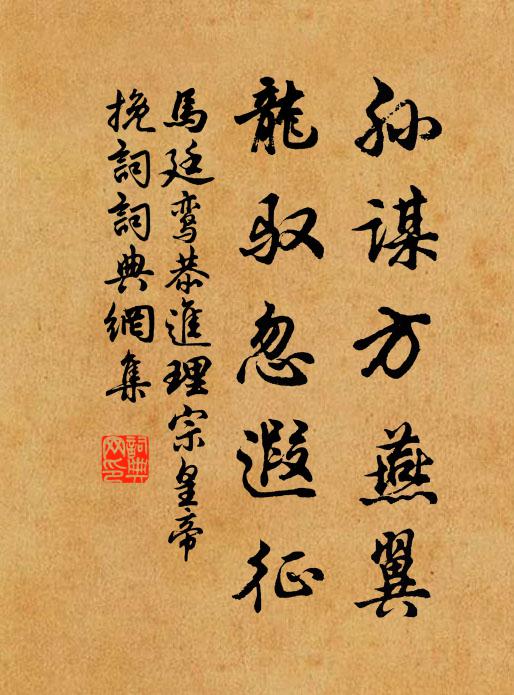 孙謀方燕翼
龍驭忽遐征
馬廷鸾恭進理宗皇帝
挽詞詞典網集
詞典网印